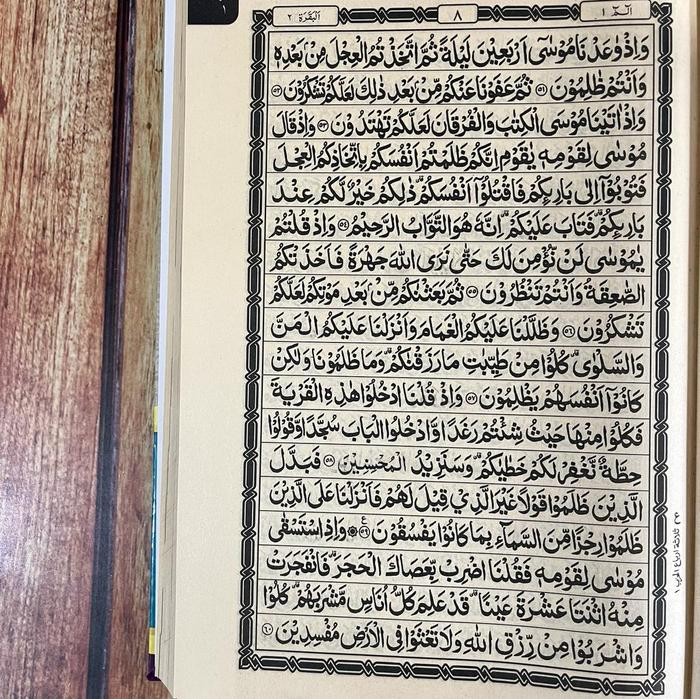 الٓمّٓ ١
٨
البقرة ٢
١
وَاِذْ وٰعَدْنَا مُوْسٰٓى اَرْبَعِيْنَ لَيْلَةً ثُمَّ اتَّخَذْتُمُ الْعِجْلَ مِنْۢ بَعْدِهٖ
وَاَنْتُمْ ظٰلِمُوْنَ ٥١ ثُمَّ عَفَوْنَا عَنْكُمْ مِّنْۢ بَعْدِ ذٰلِكَ لَعَلَّكُمْ تَشْكُرُوْنَ ٥٢
وَاِذْ اٰتَيْنَا مُوْسَى الْكِتٰبَ وَالْفُرْقَانَ لَعَلَّكُمْ تَهْتَدُوْنَ ٥٣ وَاِذْ قَالَ
مُوْسٰى لِقَوْمِهٖ يٰقَوْمِ اِنَّكُمْ ظَلَمْتُمْ اَنْفُسَكُمْ بِاتِّخَاذِكُمُ الْعِجْلَ
فَتُوْبُوْٓا اِلٰى بَارِئِكُمْ فَاقْتُلُوْٓا اَنْفُسَكُمْ ؕ ذٰلِكُمْ خَيْرٌ لَّكُمْ عِنْدَ
بَارِئِكُمْ ؕ فَتَابَ عَلَيْكُمْ ؕ اِنَّهٗ هُوَ التَّوَّابُ الرَّحِيْمُ ٥٤ وَاِذْ قُلْتُمْ
يٰمُوْسٰى لَنْ نُّؤْمِنَ لَكَ حَتّٰى نَرَى اللّٰهَ جَهْرَةً فَاَخَذَتْكُمُ
الصّٰعِقَةُ وَاَنْتُمْ تَنْظُرُوْنَ ٥٥ ثُمَّ بَعَثْنٰكُمْ مِّنْۢ بَعْدِ مَوْتِكُمْ لَعَلَّكُمْ
تَشْكُرُوْنَ ٥٦ وَظَلَّلْنَا عَلَيْكُمُ الْغَمَامَ وَاَنْزَلْنَا عَلَيْكُمُ الْمَنَّ
وَالسَّلْوٰى ؕ كُلُوْا مِنْ طَيِّبٰتِ مَا رَزَقْنٰكُمْ ؕ وَمَا ظَلَمُوْنَا وَلٰكِنْ
كَانُوْٓا اَنْفُسَهُمْ يَظْلِمُوْنَ ٥٧ وَاِذْ قُلْنَا ادْخُلُوْا هٰذِهِ الْقَرْيَةَ
فَكُلُوْا مِنْهَا حَيْثُ شِئْتُمْ رَغَدًا وَّادْخُلُوا الْبَابَ سُجَّدًا وَّقُوْلُوْا
حِطَّةٌ نَّغْفِرْ لَكُمْ خَطٰيٰكُمْ ؕ وَسَنَزِيْدُ الْمُحْسِنِيْنَ ٥٨ فَبَدَّلَ
الَّذِيْنَ ظَلَمُوْا قَوْلًا غَيْرَ الَّذِيْ قِيْلَ لَهُمْ فَاَنْزَلْنَا عَلَى الَّذِيْنَ
ظَلَمُوْا رِجْزًا مِّنَ السَّمَآءِ بِمَا كَانُوْا يَفْسُقُوْنَ ٥٩ ع وَاِذِ اسْتَسْقٰى
مُوْسٰى لِقَوْمِهٖ فَقُلْنَا اضْرِبْ بِّعَصَاكَ الْحَجَرَ ؕ فَانْفَجَرَتْ
مِنْهُ اثْنَتَا عَشْرَةَ عَيْنًا ؕ قَدْ عَلِمَ كُلُّ اُنَاسٍ مَّشْرَبَهُمْ ؕ كُلُوْا
وَاشْرَبُوْا مِنْ رِّزْقِ اللّٰهِ وَلَا تَعْثَوْا فِى الْاَرْضِ مُفْسِدِيْنَ ٦٠
ثلاثة ارباع الحزب ١